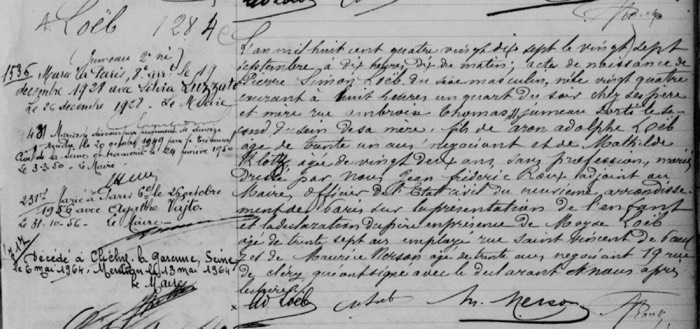 Loëb 1284
(Jumeau 2e né)
1536
Marié à Paris, 8e arr. le 19
décembre 1928 avec Silvia Luzzato
le 26 décembre 1928. Le Maire
431 Mariage dissous par jugement de divorce
le 20 octobre 1949 par le tribunal
Civil de la Seine et transcrit le 24 janvier 1950
le 3-3-50. Le Maire
2317
Marié à Paris 6e le 26 octobre
1956 avec Vajto
le 31-10-56 - le Maire
Décédé à la garenne, Seine
le 6 mai 1964. Mention le 13 mai 1964
le Maire
L'an mil huit cent quatre vingt dix sept le vingt sept
septembre à dix heures dix du matin; acte de naissance de
Pierre Simon Loëb du sexe masculin, né le vingt quatre
courant à huit heures un quart du soir chez ses père
et mère rue ambroise Thomas 11 jumeau sorti le se-
cond du sein de sa mère. fils de aron adolphe Loëb
age de trente un ans négociant et de Mathilde
Klotz agée de vingt deux ans, sans profession, mariés
Dressé par nous Jean fréderic Roux adjoint au
Maire, Officier de l'Etat civil du neuvième arrondisse-
ment de Paris sur la présentation de l'enfant
et la déclaration du père en présence de Moyse Loëb
agé de trente sept ans employé rue Saint Vincent de Paul
et de Maurice Nerson agé de trente ans négociant 19 rue
de cléry qui ont signé avec le déclarant et nous après
lecture
Ad Loëb M Loeb M. Nerson Roux